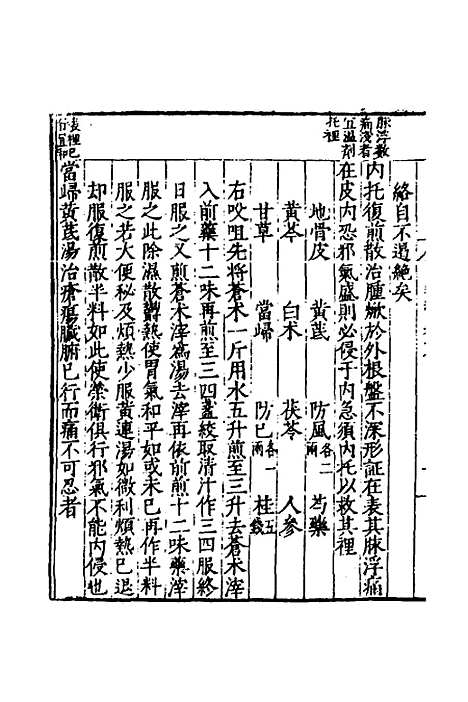 絡自不遏絶矣
脉浮數
痛淺者
宜溫剤
托裡
内托復煎散治腫焮於外根盤不深形証在表其脉浮痛
在皮内恐邪氣盛則必侵于内急須内托以救其裡
地骨皮　黃芪　防風各二兩　芍藥
黃芩　白术　茯苓　人參
甘草　當歸　防已各一兩　桂五錢
右㕮咀先将蒼术一斤用水五升煎至三升去蒼术滓
入前藥十二味再煎至三四盞絞取清汁作三四服終
日服之又煎蒼术滓為湯去滓再依前煎十二味藥滓
服之此除濕散欝熱使胃氣和平如或未已再作半料
服之若大便秘及煩熱少服黃連湯如微利煩熱已退
却服復煎散半料如此使榮衛俱行邪氣不能内侵也
表裡已
行宜和
當歸黃芪湯治瘡瘍臟腑已行而痛不可忍者